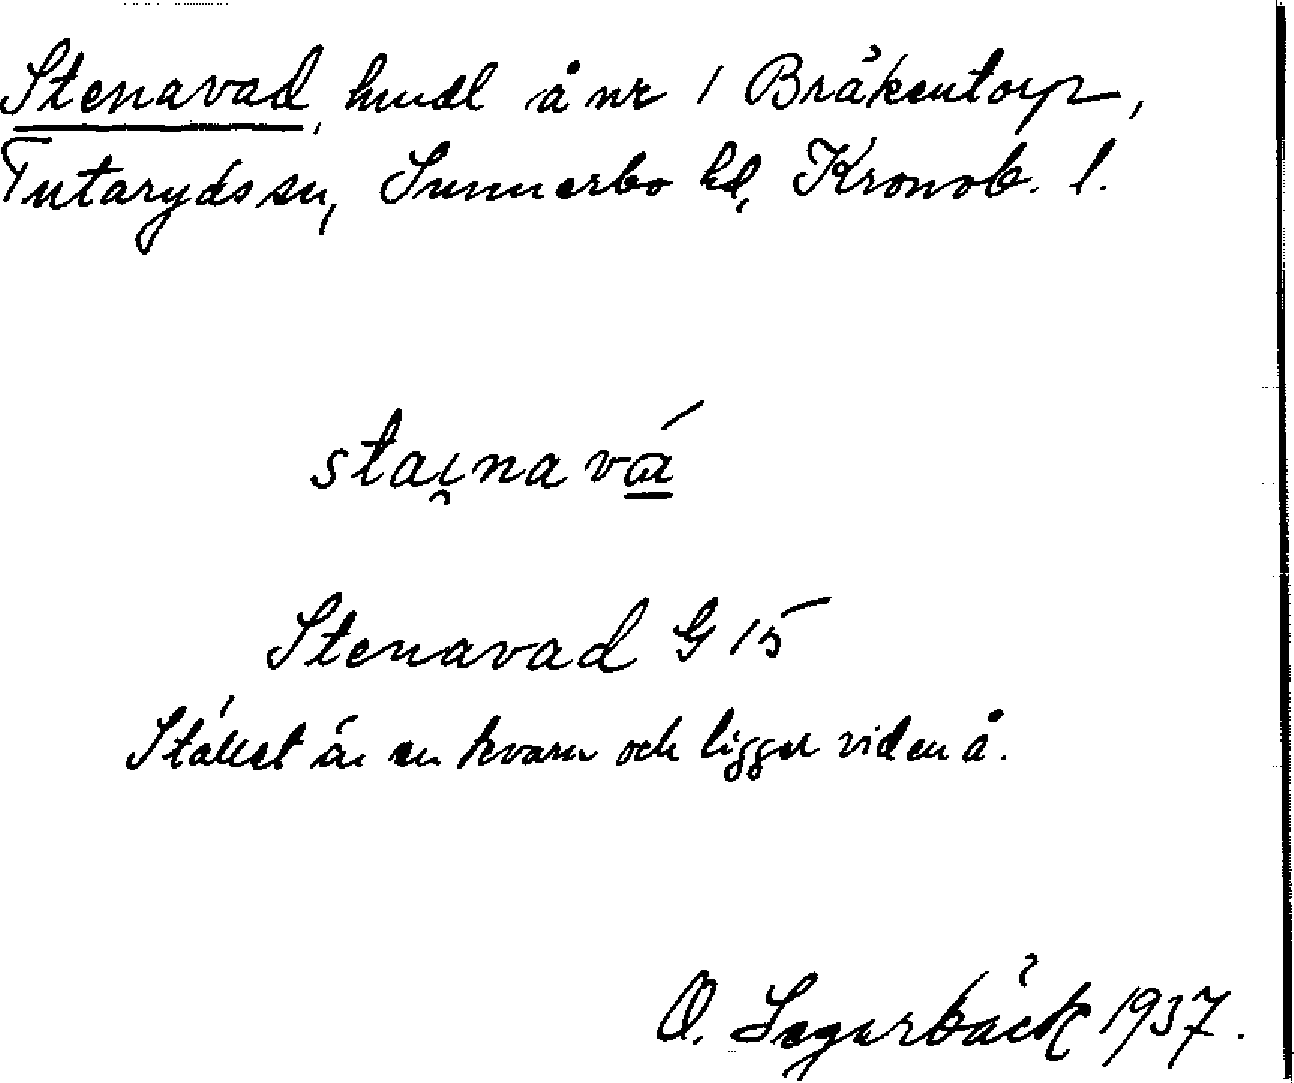 Stenavad, hmdl å nr 1 Bråkentorp,
Tutaryds sn, Sunnerbo hd, Kronob. l.
stai̯na vá
Stenavad G 15
Stället är en kvarn och ligger vid en å.
O. Segerbäck 1937.